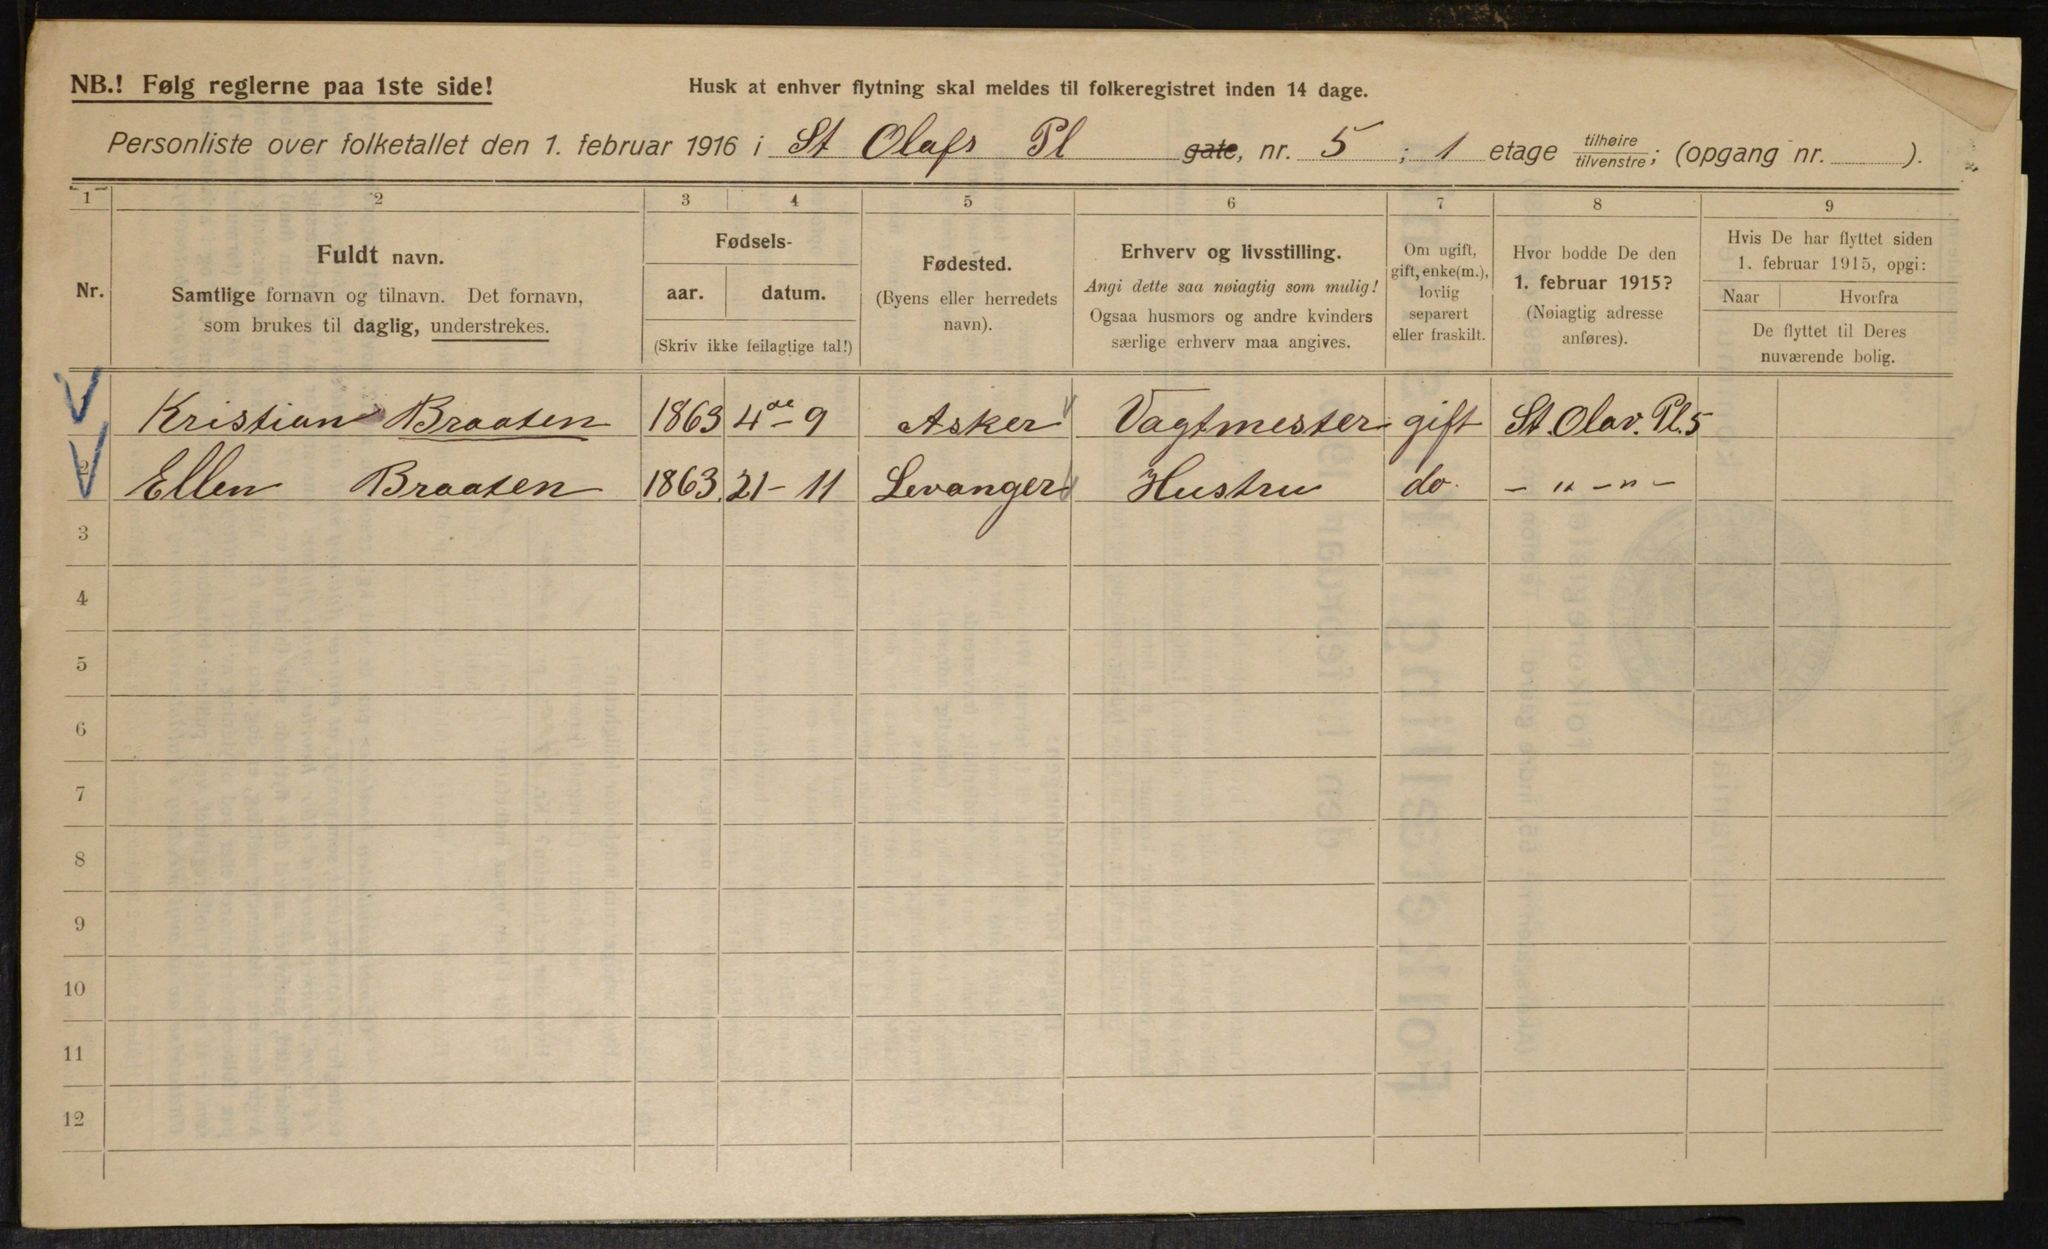 NB.! Følg reglerne paa 1ste side!
Husk at enhver flytning skal meldes til folkeregistret inden 14 dage.
Personliste over folketallet den 1. februar 1916 i St Olafs Pl gate, nr. 5 ; 1 etage tilhøire/tilvenstre; (opgang nr. ).
1 2 3 4 5 6 7 8 9
Nr.
Fuldt navn.
Samtlige fornavn og tilnavn. Det fornavn,
som brukes til daglig, understrekes.
Fødsels-
aar. datum.
(Skriv ikke feilagtige tal!)
Fødested.
(Byens eller herredets
navn).
Erhverv og livsstilling.
Angi dette saa nøiagtig som mulig!
Ogsaa husmors og andre kvinders
særlige erhverv maa angives.
Om ugift,
gift, enke(m.),
lovlig
separert
eller fraskilt.
Hvor bodde De den
1. februar 1915?
(Nøiagtig adresse
anføres).
Hvis De har flyttet siden
1. februar 1915, opgi:
Naar Hvorfra
De flyttet til Deres
nuværende bolig.
Kristian Braaten 1863 4de - 9 Asker Vagtmester gift St. Olav. Pl. 5
2 Ellen Braaten 1863. 21 - 11 Levanger Hustru do. - " - " -
3
4
5
6
7
8
9
10
11
12